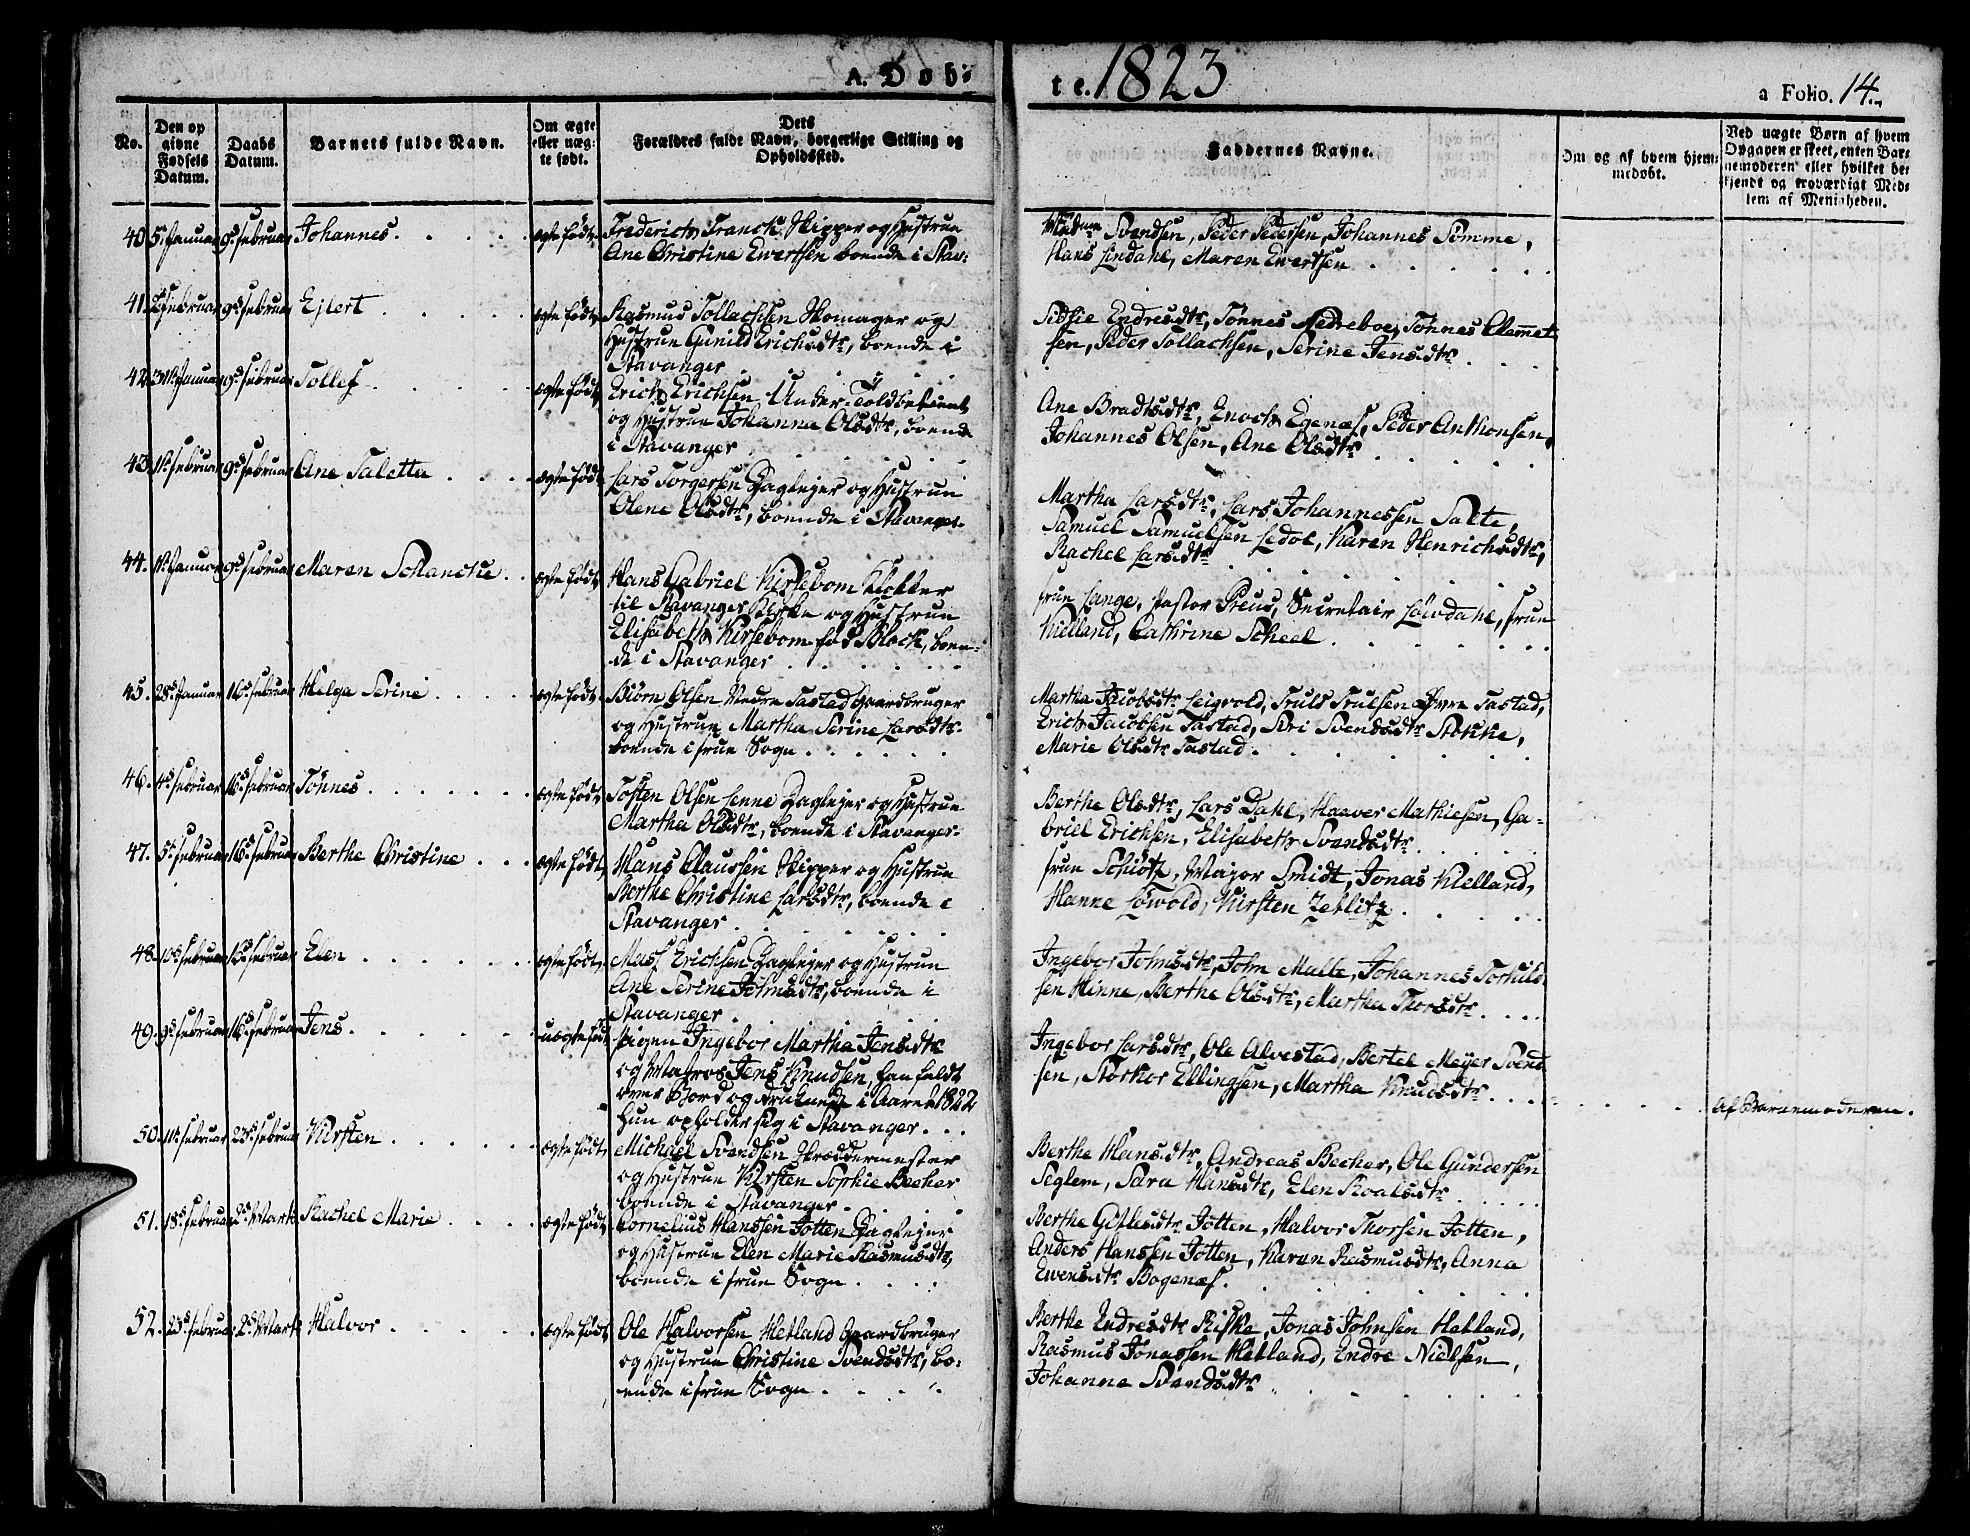 A. Døb-
te. 1823
a Folio. 14.
No.
Den op
givne
Fødsels
Datum.
Daabs
Datum.
Barnets fulde Navn.
Om ægte
eller uæg-
te født.
Dets
Forældres fulde Navn, borgerlige Stilling og
Opholdssted.
Faddernes Navne.
Om og af hvem hjem-
medøbt.
Ved uægte Børn af hvem
Opgaven er skeet, enten Bar-
nemoderen eller hvilket be-
kjendt og troværdigt Med-
lem af Menigheden.
40. 5te Januar 9de Februar Johannes. ægte født. Frederich Franck Skipper og Hustrue
Ane Christine Ewertsen boende i Stav:
Madame Svendsen, Peder Pedersen, Johannes Sømme,
Hans Lindahl, Maren Ewertsen
41. Februar 9de Februar Ejlert ægte født Rasmus Tollachsen Skomager og
Hustrue Gunild Erichsdtr, boende i
Stavanger
Sidsie Endresdtr, Tønnes Nedreboe, Tønnes Clemmet
sen, Peder Tollachsen, Serine Jensdtr
42. 31te Januar 9de Februar Tollef ægte født Erich Erichsen Under-Toldbetient
og Hustrue Johanna Olsdtr, boende
i Stavanger
Ane Bradtsdtr, Enoch Egenæs, Peder Anthonsen,
Johannes Olsen, Ane Olsdtr
43. 1te Februar 9de Februar Ane Taletta ægte født Lars Torgersen Dagleier og Hustrue
Olene Olsdtr, boende i Stavanger
Martha Larsdtr, Lars Johannessen Salte,
Samuel Samuelsen Ledol, Karen Henrichsdtr,
Rachel Larsdtr
44. Januar 9de Februar Maren Schancke ægte født Hans Gabriel Kirsebom Klokker
til Stavanger Kirke og Hustrue
Elisabeth Kirsebom fød Block, boen-
de i Stavanger
Frue Lange, Pastor Preus, Secretair Løwdahl, Frue
Kielland, Cathrine Scheel
45. 28de Januar 16de Februar Helga Serine ægte født Biørn Olsen Nedre Tastad Gaardbruger
og Hustrue Martha Serine Larsdtr
boende i Frue Sogn
Martha Jacobsdtr Leigvold, Truls Trulsen Øvre Tastad,
Erich Jacobsen Tastad, Siri Svendsdtr Stokke,
Marie Olsdtr Tastad
46. 4de Februar 16de Februar Tønnes ægte født Tosten Olsen Lenne Dagleier og Hustrue
Martha Olsdtr, boende i Stavanger
Berthe Olsdtr, Lars Dahl, Haaver Mathiesen, Ga-
briel Erichsen, Elisabeth Svendsdtr
47. 5te Februar 16de Februar Berthe Christine ægte født Hans Claussen Skipper og Hustrue
Berthe Christine Larsdtr, boende i
Stavanger
Frue Schiøtz, Major Smidt, Jonas Kielland,
Hanne Løwold, Kirsten Zetlitz
48. 10de Februar 16de Februar Elen ægte født Mass Erichsen Dagleier og Hustrue
Ane Serine Johnsdtr, boende i
Stavanger
Ingebor Johnsdtr, John Malle, Johannes Torkild-
sen Hinne, Berthe Olsdtr, Martha Thorsdtr
49. 9de Februar 16de Februar Jens uægte født Pigen Ingebor Martha Jensdtr
og Matros Jens Knudsen, han faldt
over Bord og druknede i Aaret 1822
hun opholder sig i Stavanger
Ingebor Larsdtr, Ole Alvestad, Bertel Meyer Svend
sen, Storkor Ellingsen, Martha Knudsdtr
af Barnemoderen.
50. 11te Februar 23de Februar Kirsten ægte født Michael Svendsen Skræddermester
og Hustrue Kirsten Sophie Becker
boende i Stavanger
Berthe Hansdtr, Andreas Becker, Ole Gundersen
Seglem, Sara Hansdtr, Elen Roalsdtr
51. 18de Februar 2de Marts Rachel Marie ægte født Cornelius Hanssen Jotten Dagleier
og Hustrue Elen Marie Rasmusdtr,
boende i Frue Sogn
Berthe Gitlesdtr Jotten, Halvor Thorsen Jotten,
Anders Hanssen Jotten, Karen Rasmusdtr, Anna
Ewensdtr Bogenæs
52. 23de Februar 2de Marts Halvor ægte født Ole Halvorsen Hetland Gaardbruger
og Hustrue Christine Svendsdtr, bo-
ende i Frue Sogn
Berthe Endresdtr Riske, Jonas Johnsen Hetland,
Rasmus Jonassen Hetland, Endre Nielsen,
Johanne Svendsdtr